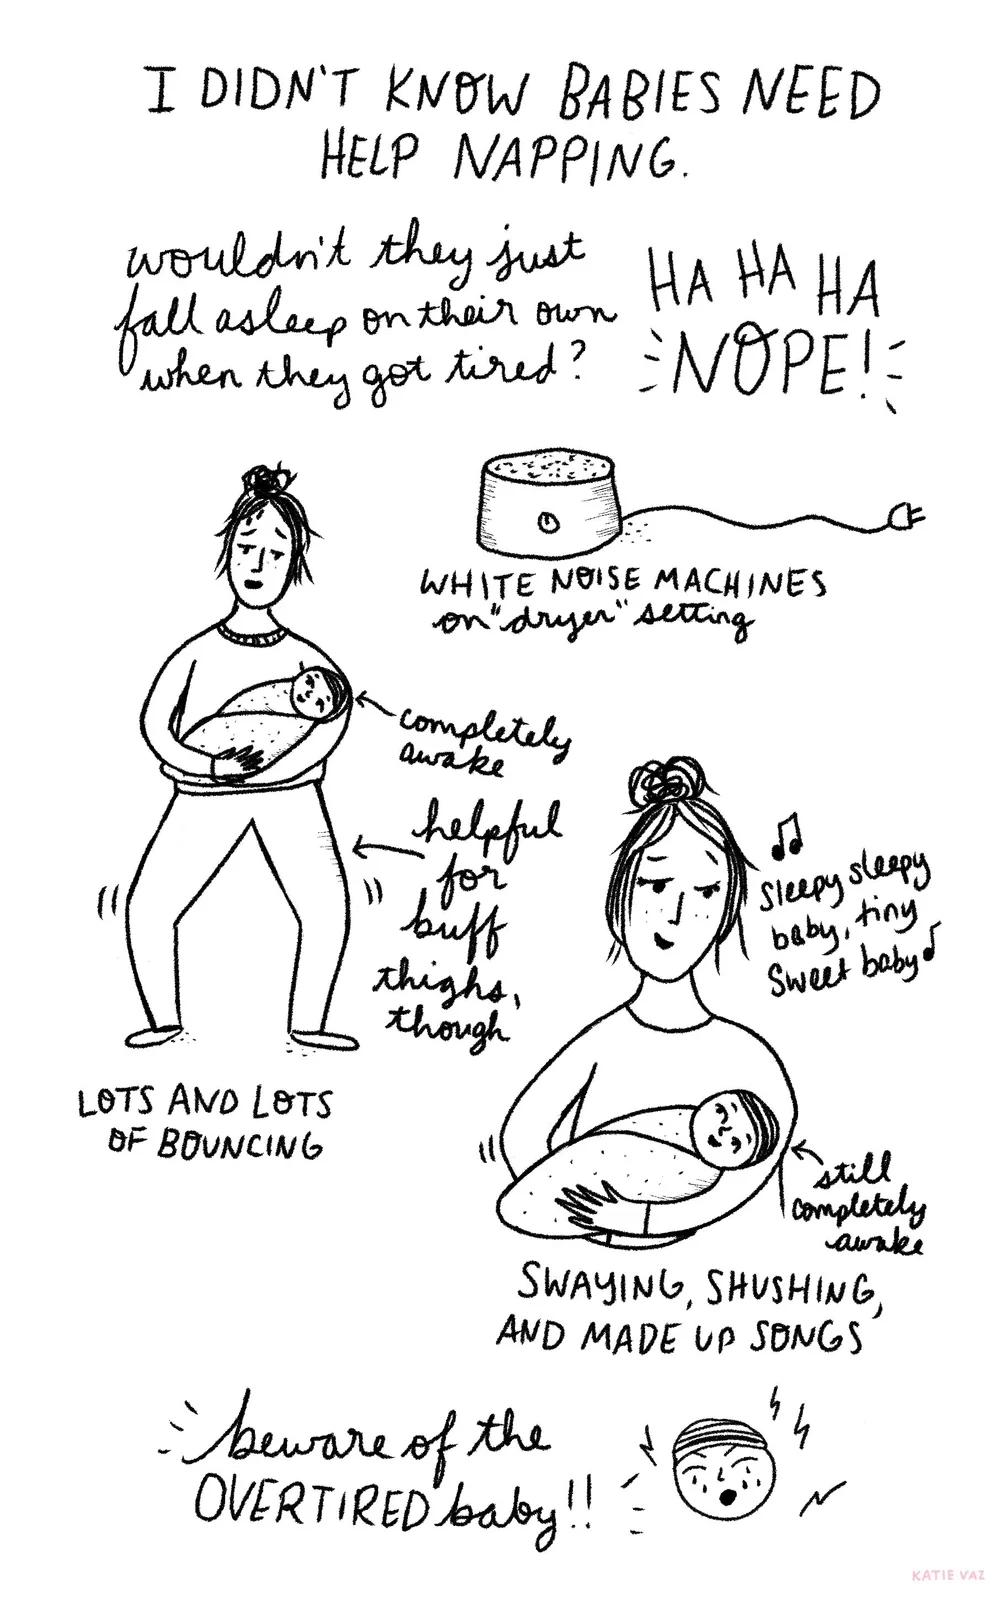 I DIDN'T KNOW BABIES NEED
HELP NAPPING.
wouldn't they just
fall asleep on their own
when they got tired?
HA HA HA
NOPE!
WHITE NOISE MACHINES
on "dryer" setting
completely
awake
helpful
for
buff
thighs,
though
LOTS AND LOTS
OF BOUNCING
Sleepy sleepy
baby, tiny
Sweet baby
still
completely
awake
SWAYING, SHUSHING,
AND MADE UP SONGS
beware of the
OVERTIRED baby!!
KATIE VAZ